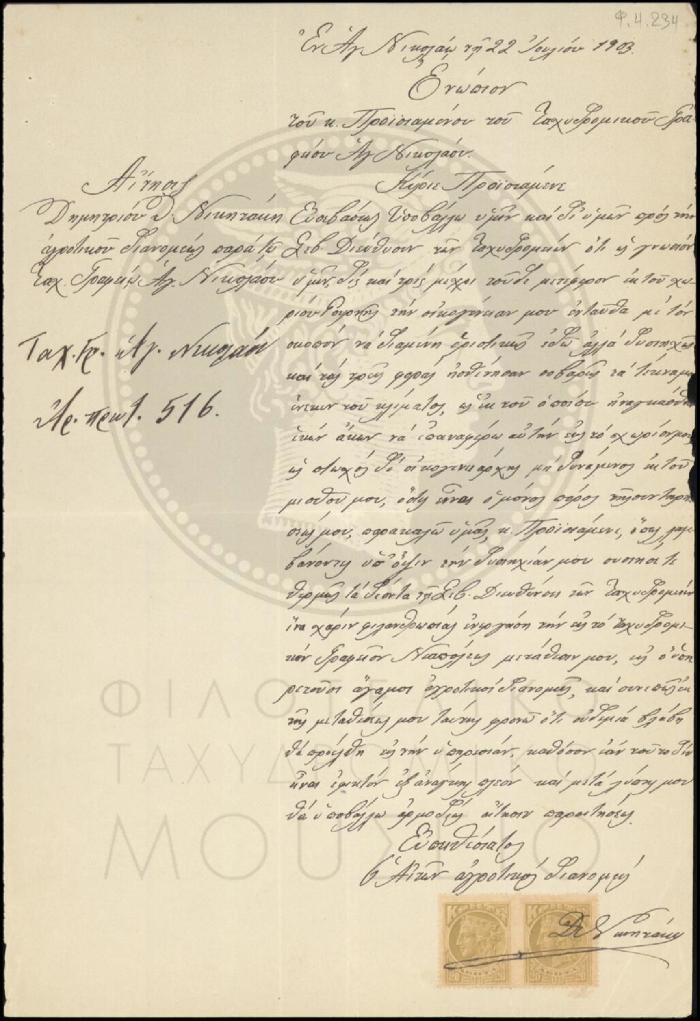 Φ.4.234
Ἐν Ἁγ. Νικολάῳ τῇ 22 Ἰουλίου 1903.
Ἐνώπιον
τοῦ κ. Προϊσταμένου τοῦ Ταχυδρομικοῦ Γρα-
φείου Ἁγ. Νικολάου.
Αἴτησις
Δημητρίου Δ. Νικητάκη
ἀγροτικοῦ διανομέως παρὰ τῷ
Ταχ. Γραφείῳ Ἁγ. Νικολάου
Ταχ. Γρ. Ἁγ. Νικολάου
Ἀρ. πρωτ. 516.
Κύριε Προϊστάμενε
Εὐσεβάστως ὑποβάλλω ὑμῖν καὶ δι' ὑμῶν πρὸς τὴν
Σεβ. Διεύθυνσιν τῶν Ταχυδρομείων ὅτι ὡς γνωστὸν
ὑμῖν, δὶς καὶ τρὶς μέχρι τοῦδε μετέφερον ἐκ τοῦ χω-
ρίου τὴν οἰκογένειάν μου ἐνταῦθα μὲ τὸν
σκοπὸν νὰ διαμένῃ ὁριστικῶς ἐδῶ ἀλλὰ δυστυχῶς
καὶ τὰς τρεῖς φορὰς ἠσθένησαν σοβαρῶς τὰ τέκνα μου
ἕνεκεν τοῦ κλίματος, ὡς ἐκ τοῦ ὁποίου ἠναγκάσθην
ἑκὼν ἄκων νὰ ἐπαναφέρω αὐτὴν εἰς τὸ χωρίον μου
ὡς πτωχὸς δὲ οἰκογενειάρχης μὴ δυνάμενος ἐκ τοῦ
μισθοῦ μου, ὅστις εἶναι ὁ μόνος πόρος τῆς συντηρή-
σεώς μου, παρακαλῶ ὑμᾶς, κ. Προϊστάμενε, ὅπως λαμ-
βάνοντες ὑπ' ὄψιν τὴν δυστυχίαν μου συστήσητε
θερμῶς τὰ δέοντα τῇ Σεβ. Διευθύνσει τῶν Ταχυδρομείων
ἵνα χάριν φιλανθρωπίας ἐνεργήσῃ τὴν εἰς τὸ Ταχυδρομι-
κὸν Γραφεῖον Νεαπόλεως μετάθεσίν μου, εἰς ὃ ὑπη-
ρετοῦσι ἄγαμοι ἀγροτικοὶ διανομεῖς, καὶ συνεπείᾳ
τῆς μεταθέσεώς μου ταύτης φρονῶ ὅτι οὐδεμία βλάβη
θὰ προέλθῃ εἰς τὴν ὑπηρεσίαν, καθόσον ἐὰν τοῦτο δὲν
εἶναι ἐφικτὸν ἐξ ἀνάγκης πλέον καὶ μετὰ λύπης μου
θὰ ὑποβάλλω ἁρμοδίως αἴτησιν παραιτήσεως.
Εὐπειθέστατος
Ὁ Αἰτῶν ἀγροτικὸς διανομεύς
Δ. Νικητάκης
ΦΙΛΟΤΕΛΙΚΟ
ΤΑΧΥΔΡΟΜΙΚΟ
ΜΟΥΣΕΙΟ